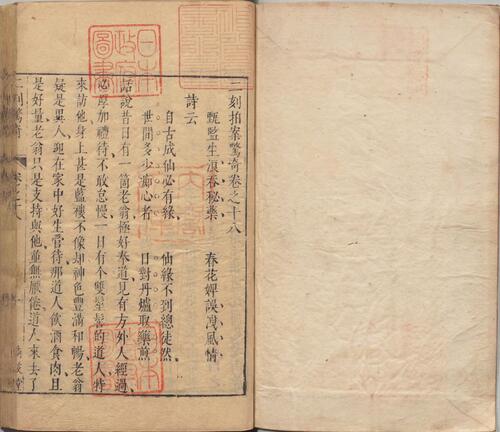 二刻拍案驚奇卷之十八
甄監生浪吞秘藥　春花婢誤洩風情
詩云
自古成仙必有緣　仙緣不到總徒然
世間多少痴心者　日對丹爐取藥煎
話說昔日有一箇老翁極好奉道見有方外人經過
必厚加禮待不敢怠慢一日有个雙髽髻的道人特
來訪他身上甚是藍縷不像却神色豐滿和暢老翁
疑是異人迎在家中好生管待那道人飲酒食肉且
是好量老翁只是支持與他並無厭倦道人來去了
二刻驚奇　卷之十八
日本
政府
圖書